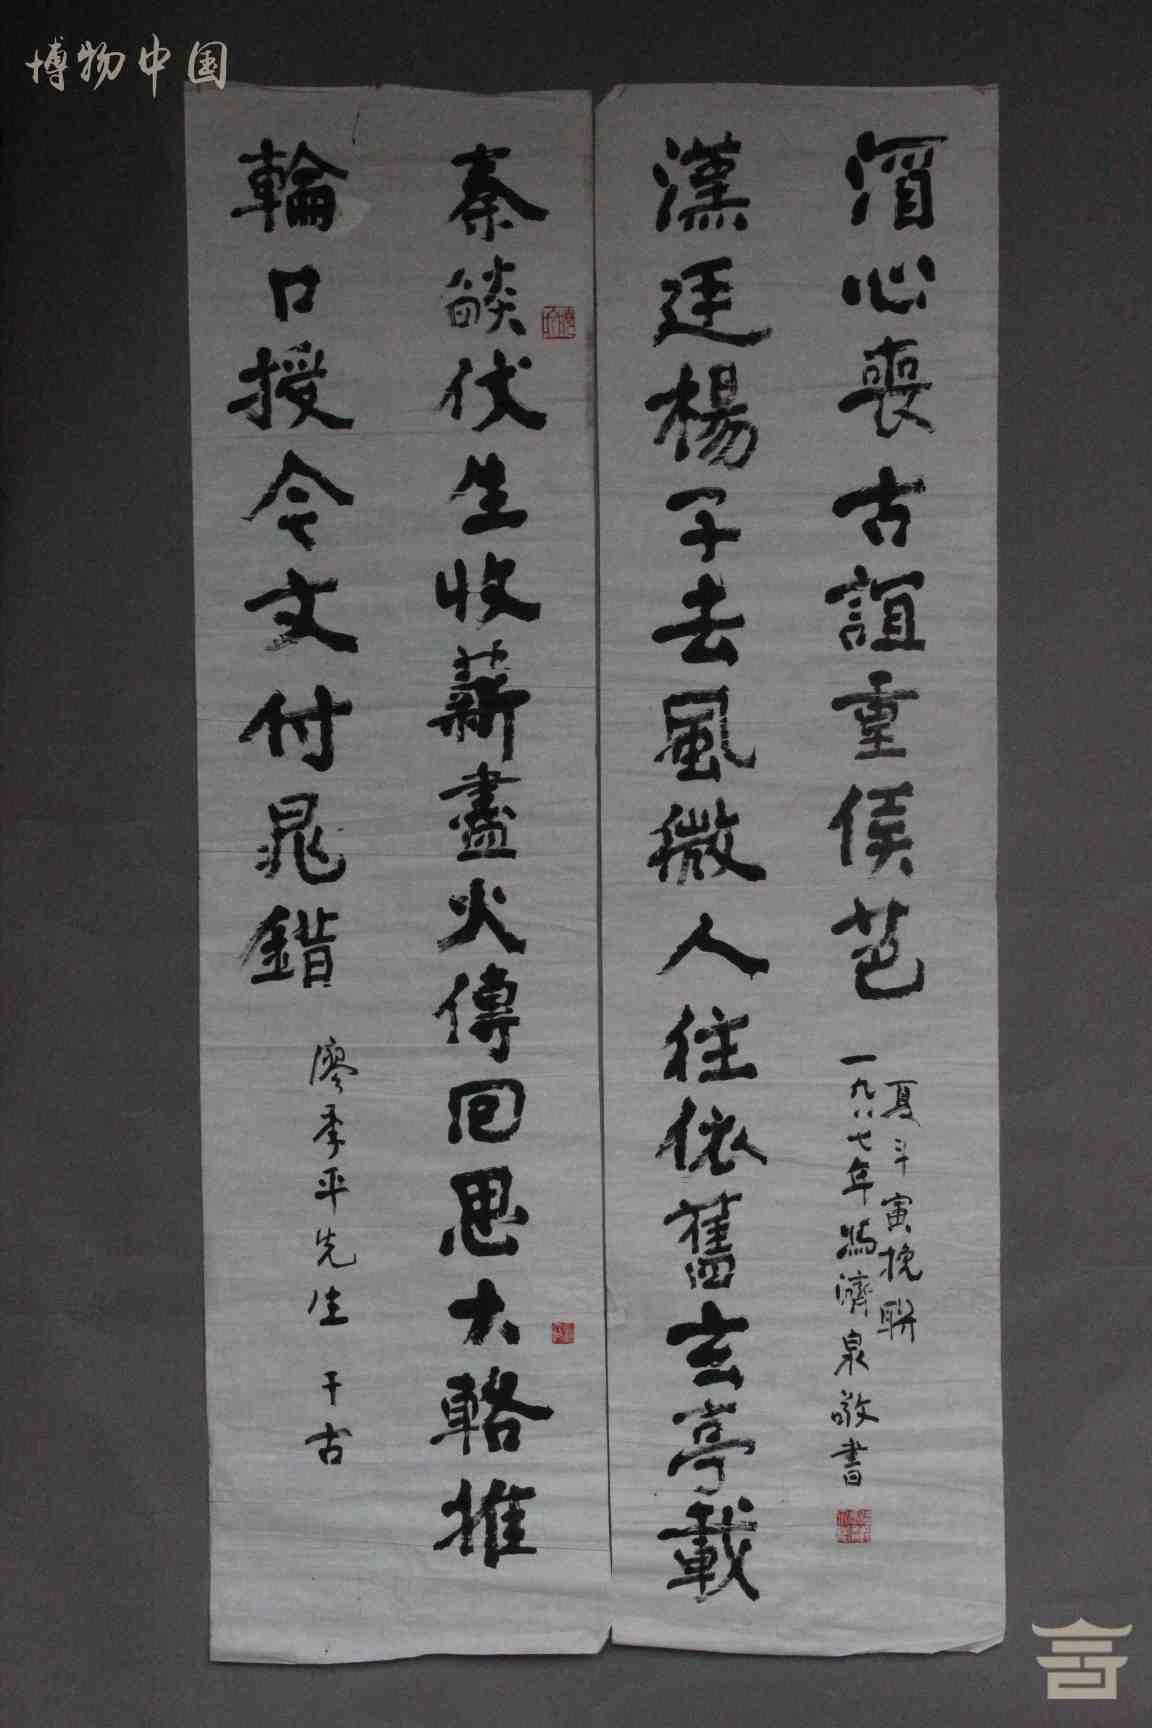 博物中国
秦燄伏生收薪盡火傳回思大輅推
輪口授今文付晁錯
廖季平先生 千古
漢廷楊子去風微人往依舊玄亭載
酒心喪古誼重侯芭
夏斗寅挽聯
一九八七年馮濟泉敬書